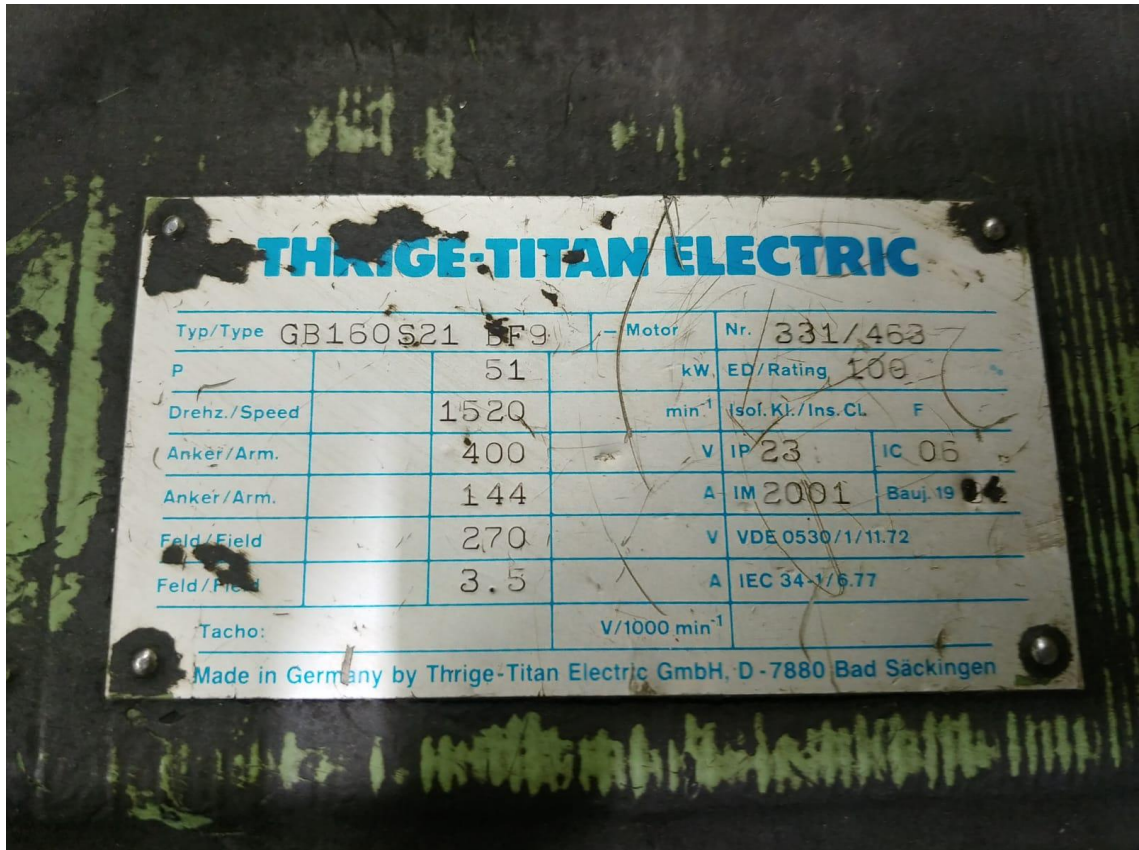 THRIGE-TITAN ELECTRIC
Typ/Type GB160S21 F9 - Motor Nr. 331/463
P 51 kW ED/Rating 100 %
Drehz./Speed 1520 min⁻¹ Isol. Kl./Ins. Cl. F
Anker/Arm. 400 V IP 23 IC 06
Anker/Arm. 144 A IM 2001 Bauj. 19
Feld/Field 270 V VDE 0530/1/11.72
Feld/Field 3.5 A IEC 34-1/6.77
Tacho: V/1000 min⁻¹
Made in Germany by Thrige-Titan Electric GmbH, D-7880 Bad Säckingen